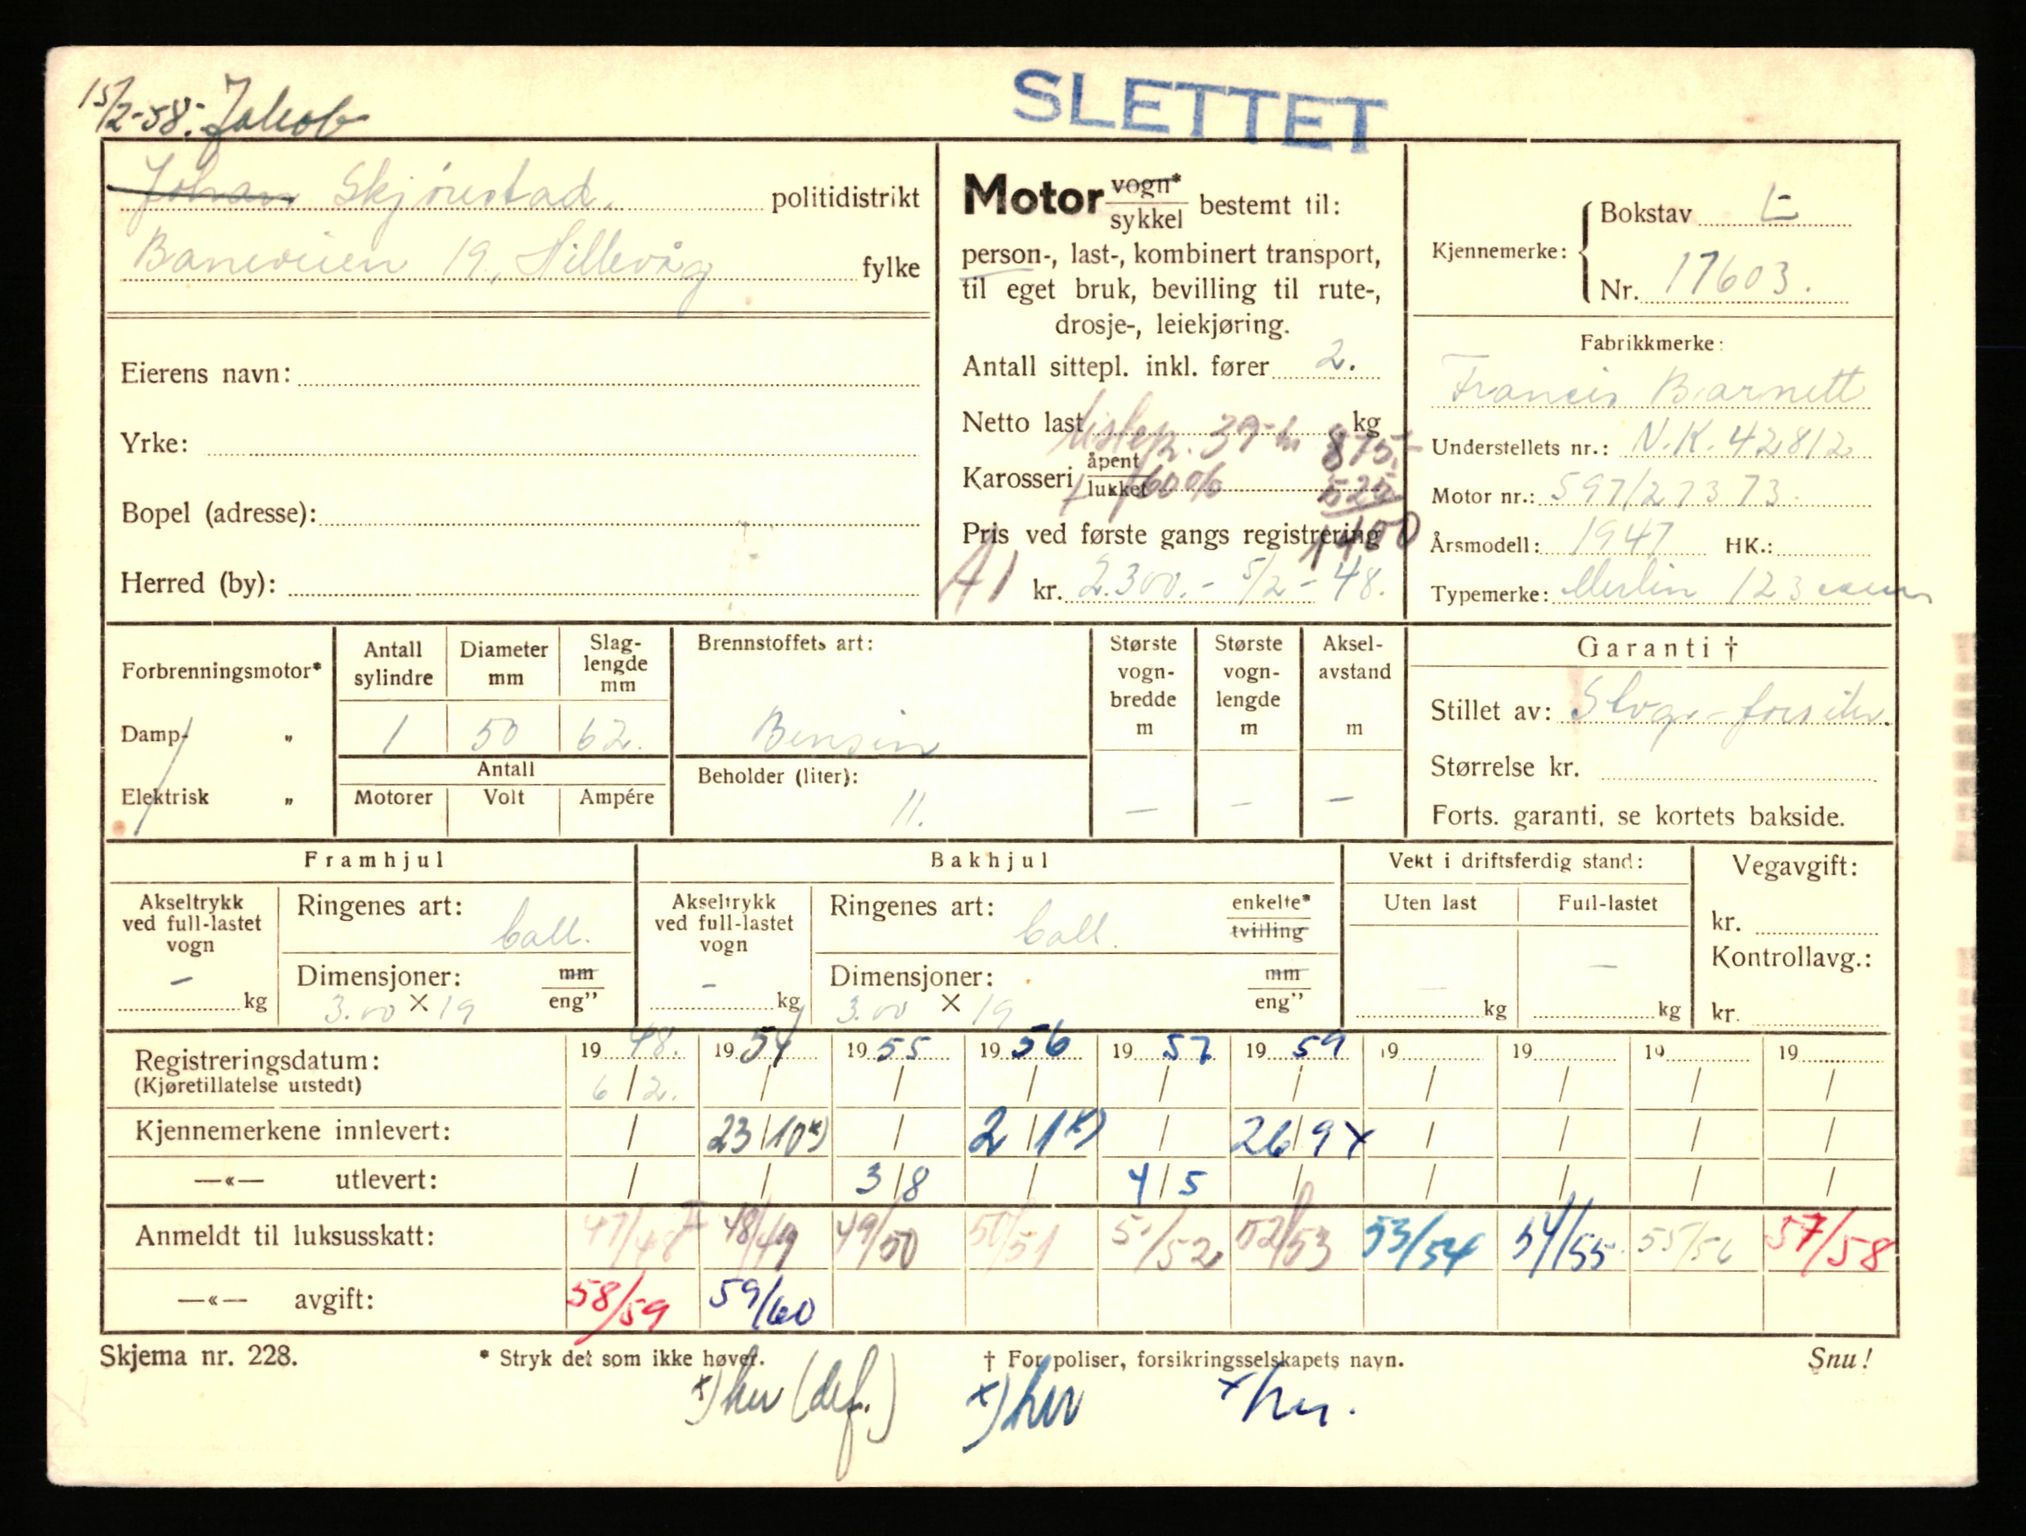 15/2-58: Jakob
SLETTET
Johan Skjørestad. politidistrikt
Baneveien 19, Hillevåg fylke
Eierens navn:
Yrke:
Bopel (adresse):
Herred (by):
Motor vogn* sykkel bestemt til:
person-, last-, kombinert transport,
til eget bruk, bevilling til rute-,
drosje-, leiekjøring.
Antall sittepl. inkl. fører 2.
Netto last kg
875.-
Karosseri åpent lukket
+ 60%
525
1400
Pris ved første gangs registrering
A1 kr. 2.300.- 5/2-48.
Kjennemerke: Bokstav L
Nr. 17603.
Fabrikkmerke:
Francis Barnett
Understellets nr.: N.K. 42812
Motor nr.: 597/27373.
Årsmodell: 1947 HK.:
Typemerke: Merlin 123 ccm
Forbrenningsmotor*
Damp- "
Elektrisk "
Antall sylindre Diameter mm Slag-lengde mm
1 50 62.
Antall
Motorer Volt Ampére
Brennstoffets art:
Bensin
Beholder (liter):
11.
Største vogn-bredde m
—
Største vogn-lengde m
—
Aksel-avstand m
—
Garanti †
Stillet av:
Størrelse kr.
Forts. garanti, se kortets bakside.
Framhjul
Akseltrykk ved full-lastet vogn
- kg
Ringenes art: ball.
Dimensjoner: mm eng"
3.00 × 19
Bakhjul
Akseltrykk ved full-lastet vogn
- kg
Ringenes art: ball. enkelte* tvilling
Dimensjoner: mm eng"
3.00 × 19
Vekt i driftsferdig stand:
Uten last Full-lastet
— —
kg kg
Vegavgift:
kr.
Kontrollavg.:
kr.
Registreringsdatum: 19 48. 19 54 19 55 19 56 19 57 19 59 19 19 19 19
(Kjøretillatelse utstedt) 6/2. / / / / / / / / /
Kjennemerkene innlevert: / 23/10 x) / 2/1 x) / 26/9 x / / / /
—«— utlevert: / / 3/8 / 4/5 / / / / /
Anmeldt til luksusskatt: 47/48 48/49 49/50 50/51 51/52 52/53 53/54 54/55 55/56 57/58
—«— avgift: 58/59 59/60
Skjema nr. 228.
* Stryk det som ikke høver.
† For poliser, forsikringsselskapets navn.
Snu!
x) her (def.) x) her x her.